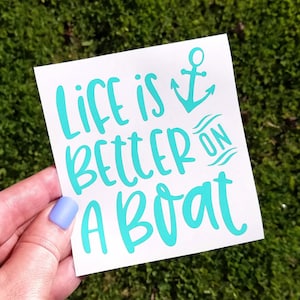 Life is
Better on
A Boat